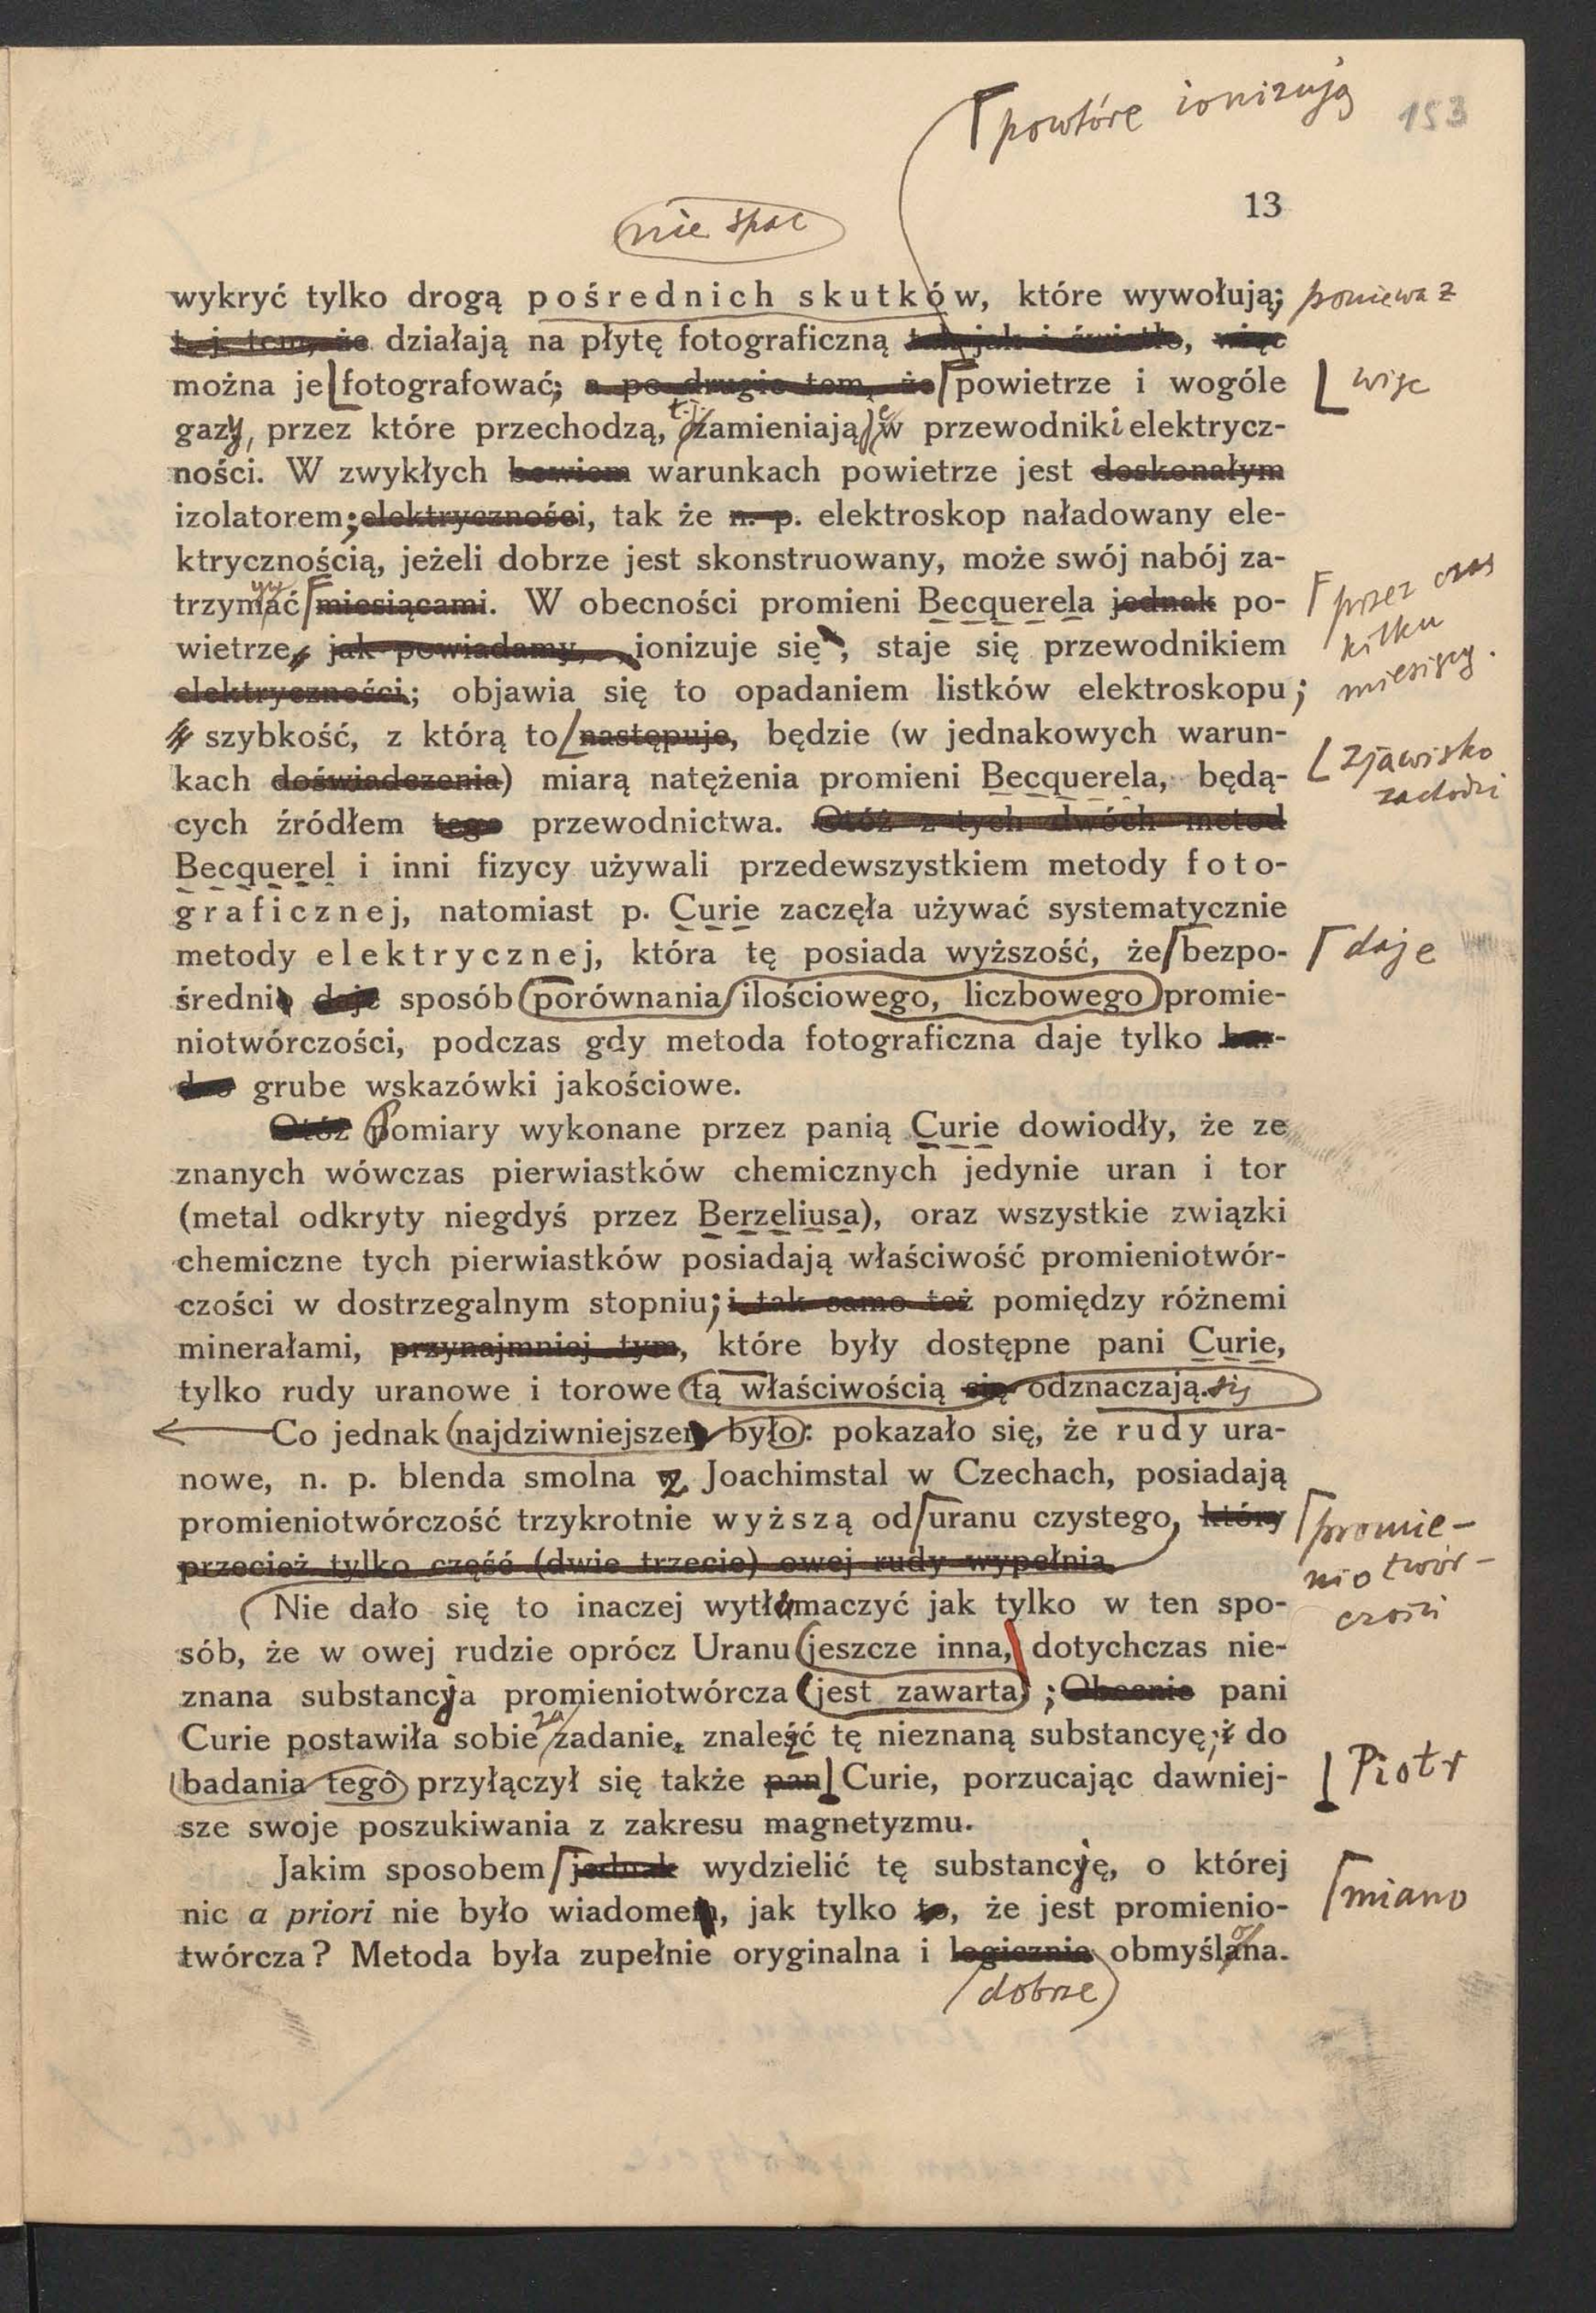 powtóre ionizują
153
13
nie spac
wykryć tylko drogą pośrednich skutków, które wywołują; ponieważ
t. j. tem, że działają na płytę fotograficzną tak jak i światło, więc
można je fotografować; a po drugie tem, że powietrze i wogóle więc
gazy, przez które przechodzą, t.j. zamieniają w przewodniki elektrycz-
ności. W zwykłych bowiem warunkach powietrze jest doskonałym
izolatorem; elektryczności, tak że n. p. elektroskop naładowany ele-
ktrycznością, jeżeli dobrze jest skonstruowany, może swój nabój za-
trzymać miesiącami. W obecności promieni Becquerela jednak po- przez czas
wietrze, jak powiadamy, ionizuje się, staje się przewodnikiem kilku
elektryczności; objawia się to opadaniem listków elektroskopu; miesięcy.
szybkość, z którą to następuje, będzie (w jednakowych warun- zjawisko
kach doświadczenia) miarą natężenia promieni Becquerela, będą- zachodzi
cych źródłem tego przewodnictwa. Otóż z tych dwóch metod
Becquerel i inni fizycy używali przedewszystkiem metody foto-
graficznej, natomiast p. Curie zaczęła używać systematycznie
metody elektrycznej, która tę posiada wyższość, że bezpo- daje
średni daje sposób porównania ilościowego, liczbowego promie-
niotwórczości, podczas gdy metoda fotograficzna daje tylko bar-
dzo grube wskazówki jakościowe.
Otóż Pomiary wykonane przez panią Curie dowiodły, że ze
znanych wówczas pierwiastków chemicznych jedynie uran i tor
(metal odkryty niegdyś przez Berzeliusa), oraz wszystkie związki
chemiczne tych pierwiastków posiadają właściwość promieniotwór-
czości w dostrzegalnym stopniu; i tak samo też pomiędzy różnemi
minerałami, przynajmniej tym, które były dostępne pani Curie,
tylko rudy uranowe i torowe tą właściwością się odznaczają. się
Co jednak najdziwniejszem było: pokazało się, że rudy ura-
nowe, n. p. blenda smolna z Joachimstal w Czechach, posiadają
promieniotwórczość trzykrotnie wyższą od uranu czystego, który promie-
przecież tylko część (dwie trzecie) owej rudy wypełnia. niotwór-
Nie dało się to inaczej wytłumaczyć jak tylko w ten spo- czości
sób, że w owej rudzie oprócz Uranu jeszcze inna, dotychczas nie-
znana substancja promieniotwórcza jest zawarta; Obecnie pani
Curie postawiła sobie za zadanie znaleźć tę nieznaną substancyę; i do
badania tego przyłączył się także pan Curie, porzucając dawniej- Piotr
sze swoje poszukiwania z zakresu magnetyzmu.
Jakim sposobem jednak wydzielić tę substancję, o której
nic a priori nie było wiadomem, jak tylko to, że jest promienio- miano
twórcza? Metoda była zupełnie oryginalna i logicznie obmyślana.
dobrze